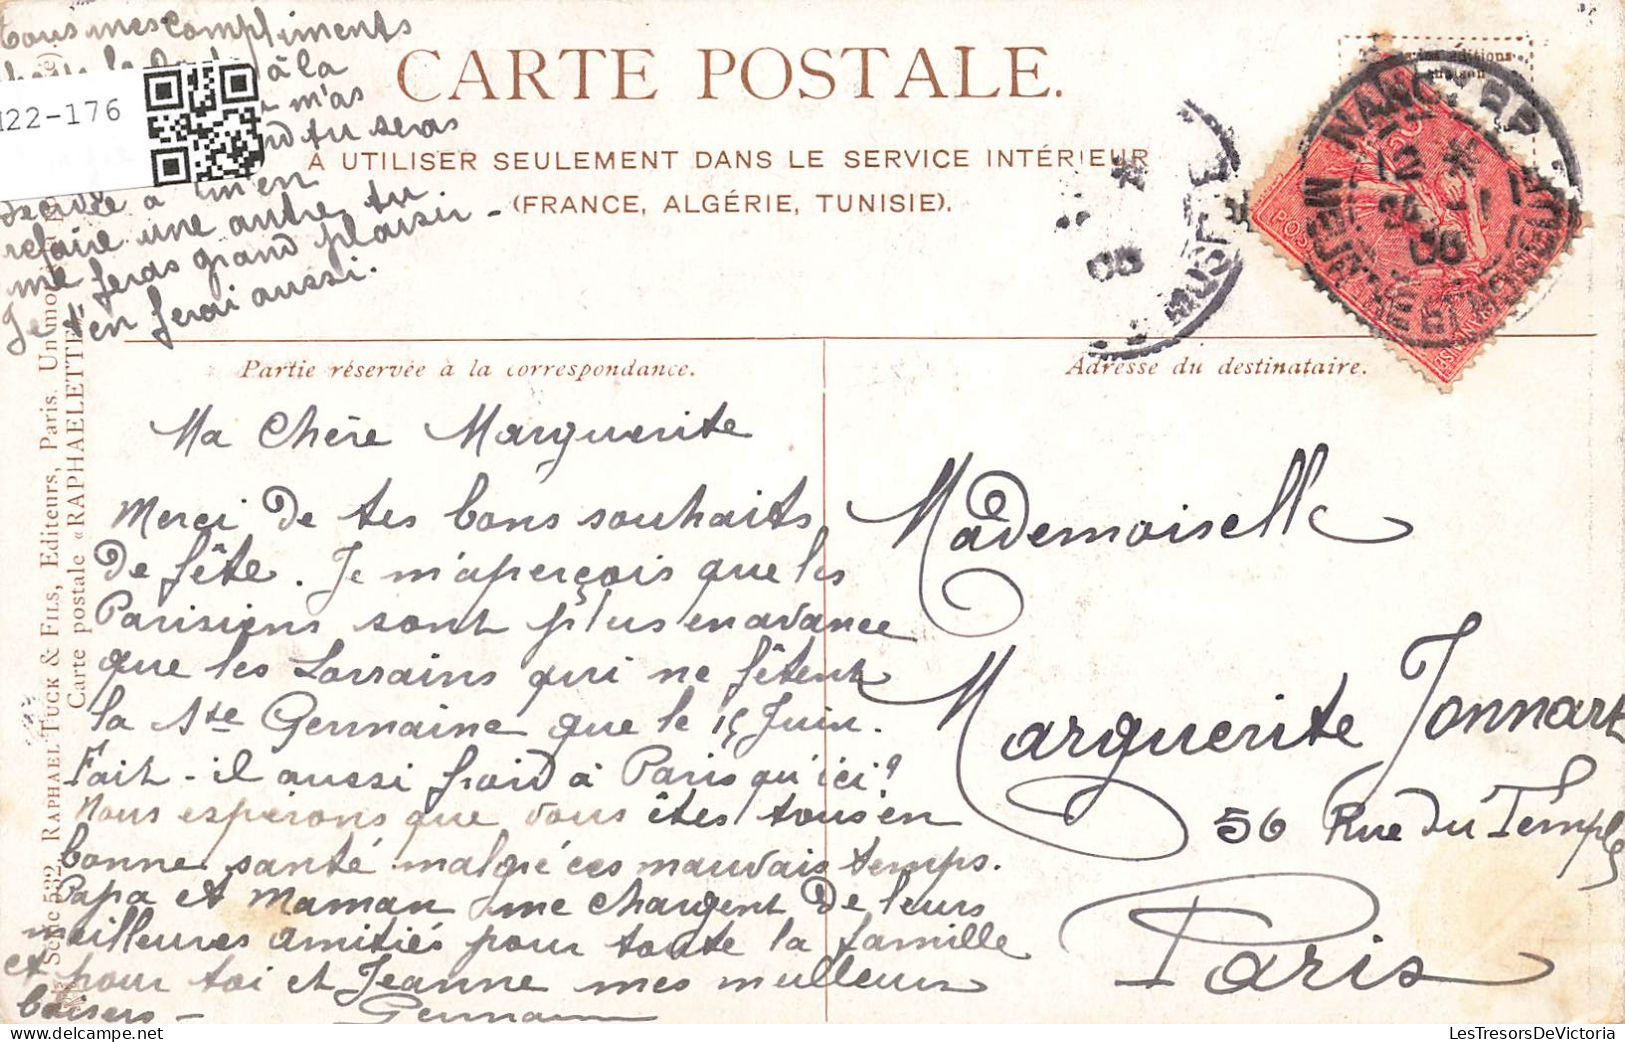 Tous mes compliments
à la
m'as
tu seras
à m'en
refaire une autre, tu
me feras grand plaisir -
Je t'en ferai aussi.
122-176
CARTE POSTALE.
A UTILISER SEULEMENT DANS LE SERVICE INTÉRIEUR
(FRANCE, ALGÉRIE, TUNISIE).
NANCY
MEURTHE ET MOSELLE
Partie réservée à la correspondance.
Adresse du destinataire.
Ma Chère Marguerite
Merci de tes bons souhaits
de fête. Je m'aperçois que les
Parisiens sont plus en avance
que les Lorrains qui ne fêtent
la Ste Germaine que le 15 Juin.
Fait-il aussi froid à Paris qu'ici?
Nous espérons que vous êtes tous en
bonne santé malgré ces mauvais temps.
Papa et Maman me chargent de leurs
meilleures amitiés pour toute la famille
et pour toi et Jeanne mes meilleurs
baisers -
Germaine
Mademoiselle
Marguerite Jonnart
56 Rue du Temple
Paris
Série 532. RAPHAEL TUCK & FILS, Editeurs, Paris.
Carte postale «RAPHAELETTE»
LesTresorsDeVictoria